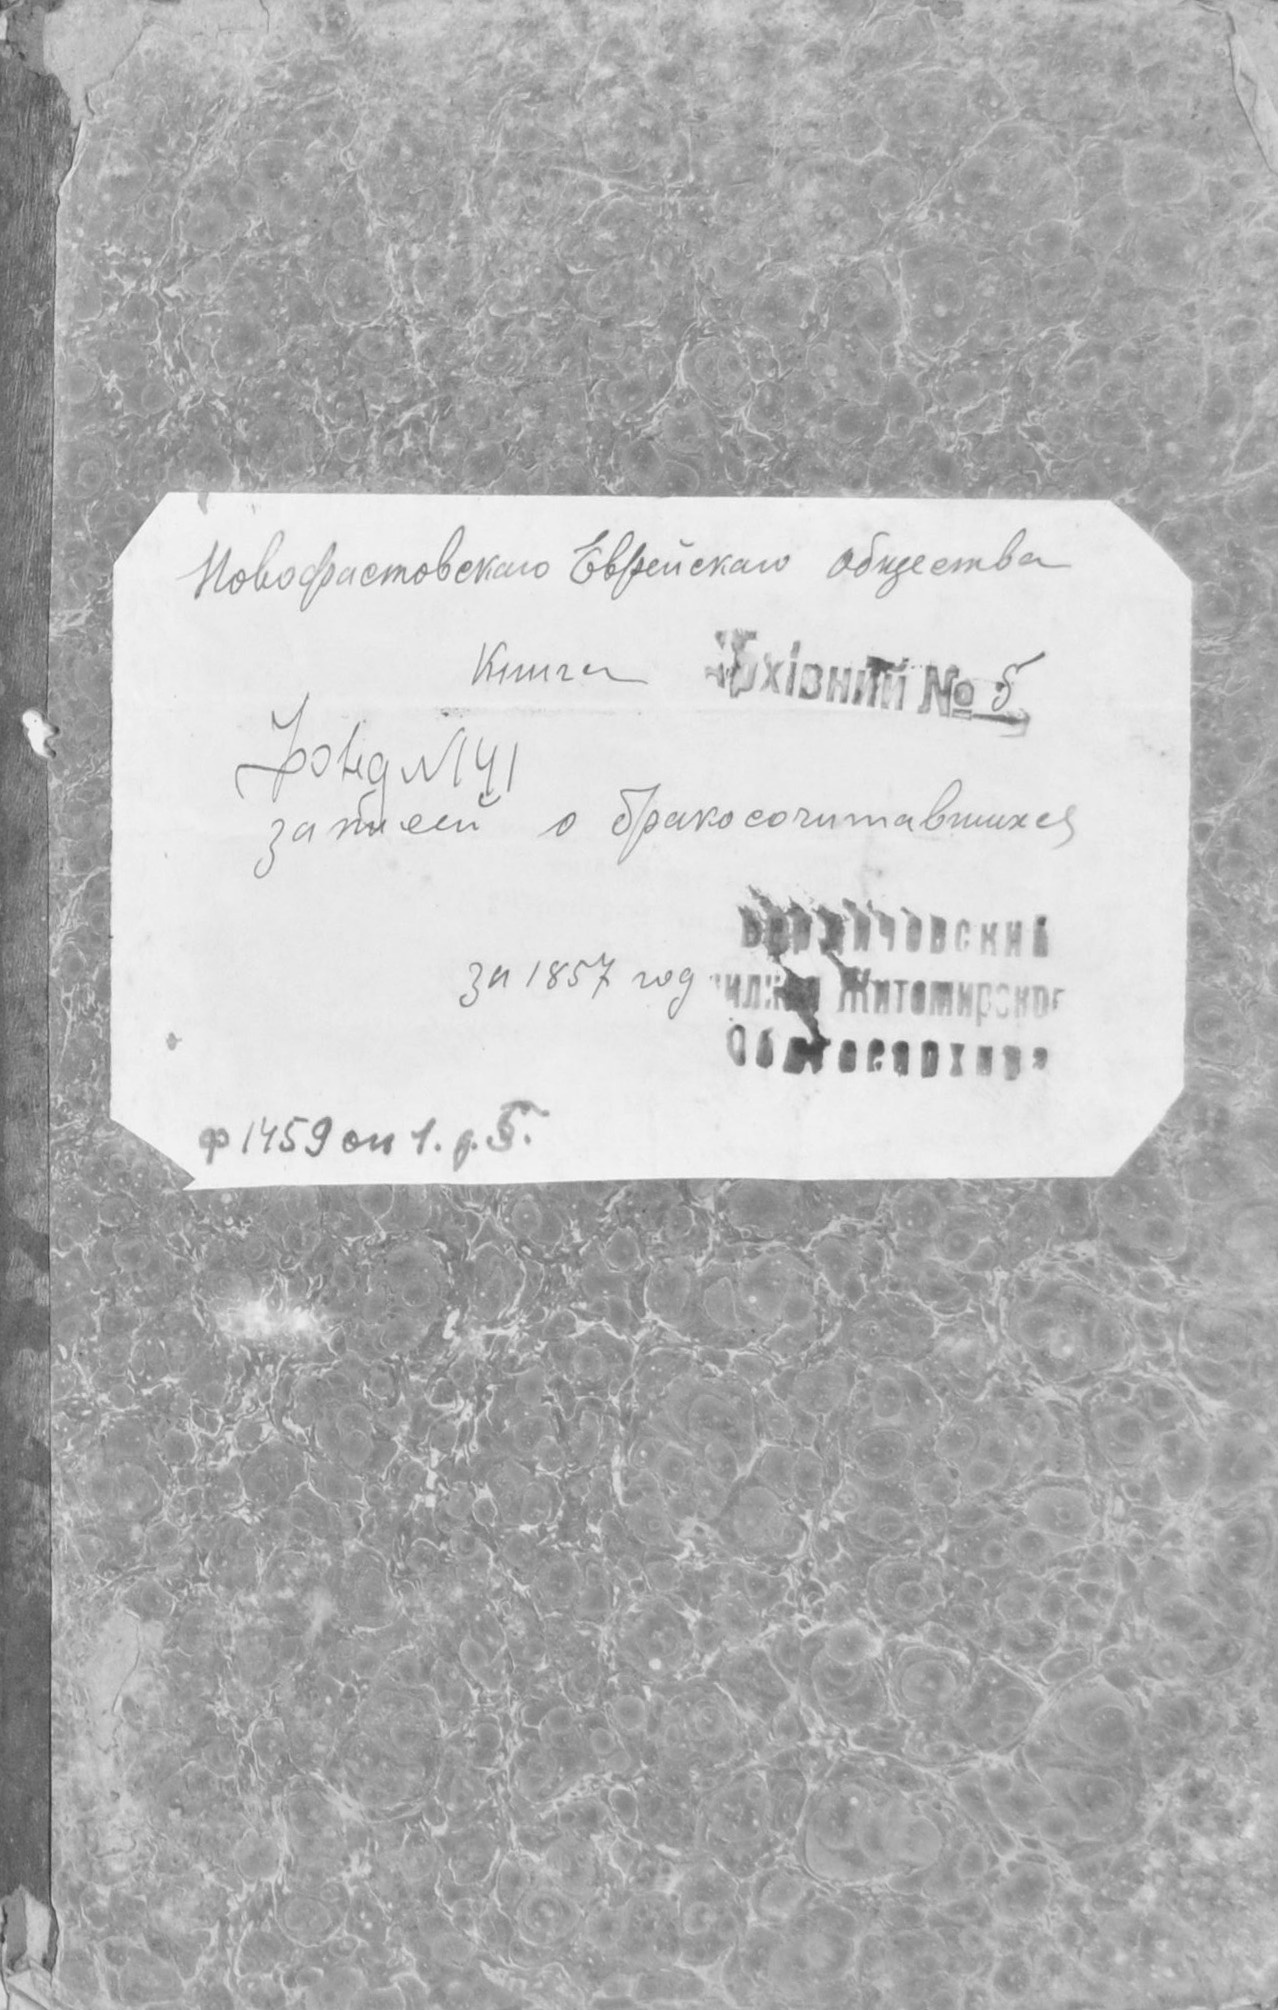 Новофастовскаго Еврейскаго общества
Книга
Архівний № 5
Фонд № 141
записей о бракосочитавшихся
Бердичовский
за 1857 год
филиал Житомирского
Облгосархива
ф 1459 оп 1. д. 5.